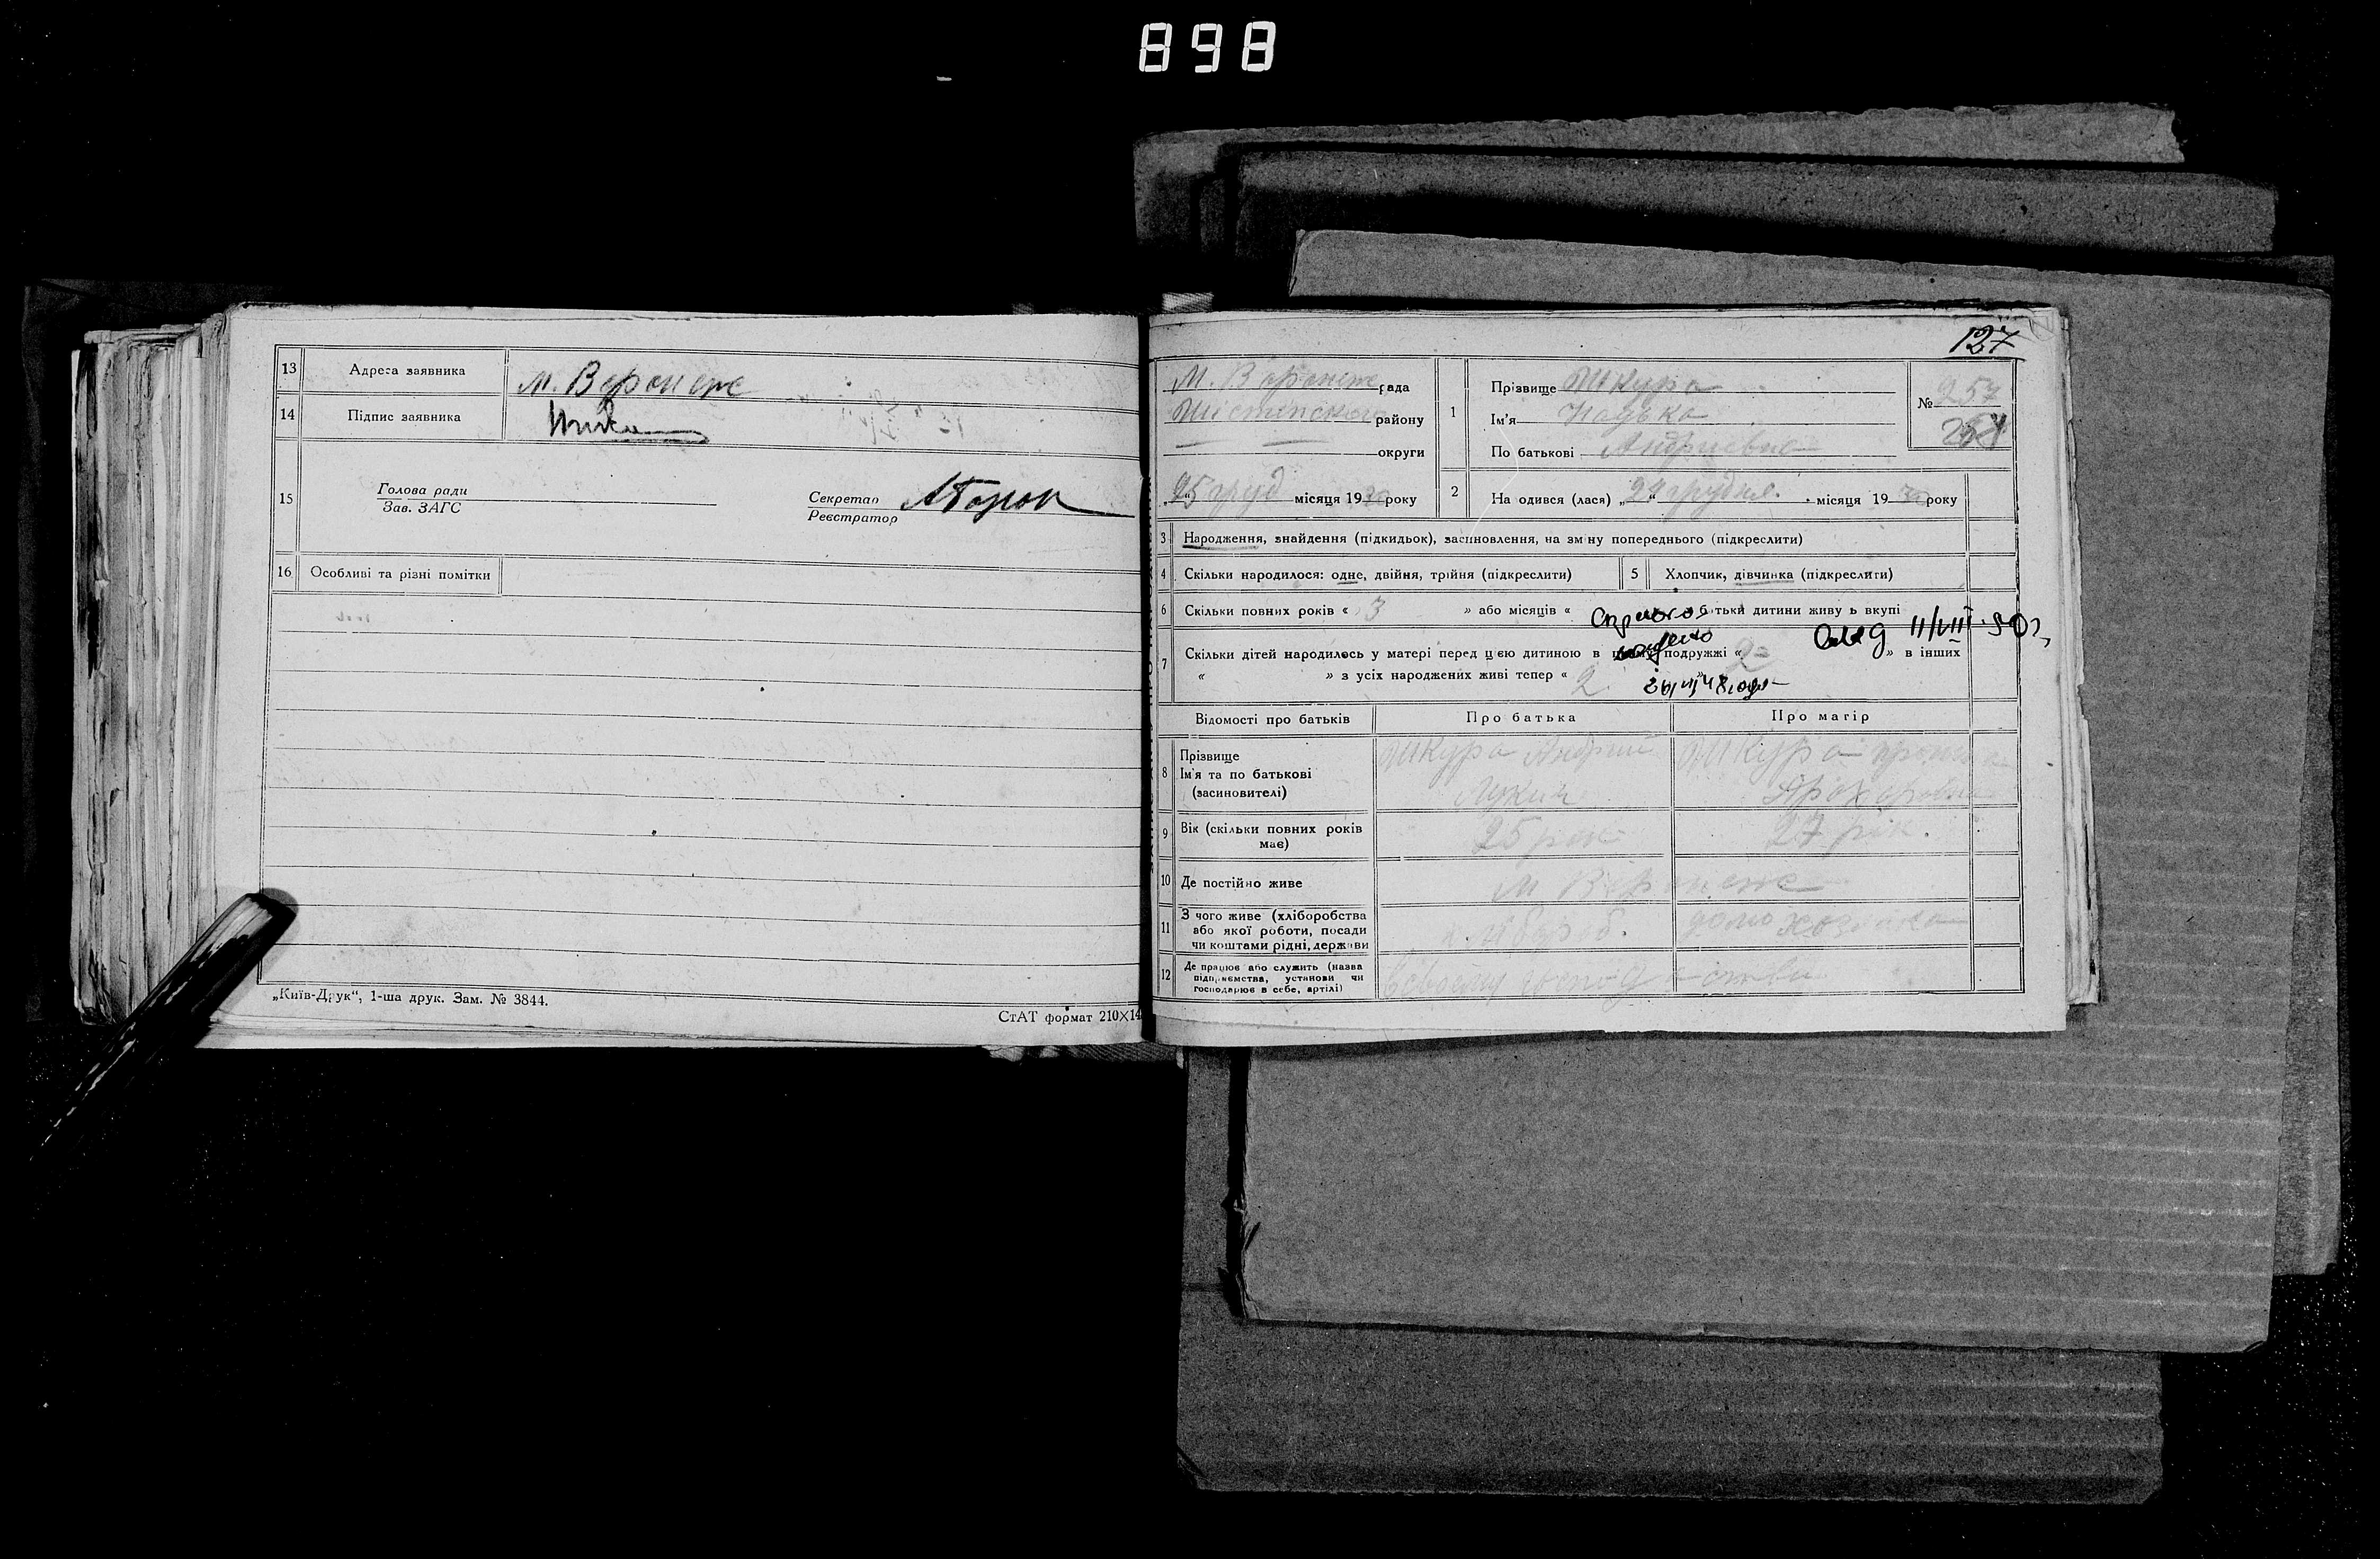 898
13 Адреса заявника м. Воронеж
14 Підпис заявника
15 Голова ради
Зав. ЗАГС
Секретар
Реєстратор
16 Особливі та різні помітки
„Київ-Друк“, 1-ша друк. Зам. № 3844.
СтАТ формат 210X14
127
М. Воронеж рада
району
округи
25 груд місяця 1930 року
1 Прізвище Шкура
Ім'я Надька
По батькові Андриевна
№ 257
2 На одився (лася) „24“ грудня місяця 1930 року
3 Народження, знайдення (підкидьок), засиновлення, на зміну попереднього (підкреслити)
4 Скільки народилося: одне, двійня, трійня (підкреслити)
5 Хлопчик, дівчинка (підкреслити)
6 Скільки повних років « 3 » або місяців « батьки дитини живу ь вкупі
7 Скільки дітей народилось у матері перед цією дитиною в цьому подружжі « 2 » в інших
« » з усіх народжених живі тепер « 2
11/VIII-50г.
Відомості про батьків
Про батька
Про матір
8 Прізвище
Ім'я та по батькові
(засиновителі)
Шкура Андрий
Шкура
9 Вік (скільки повних років
має)
25 рок
27 рок.
10 Де постійно живе
м Воронеж
11 З чого живе (хліборобства
або якої роботи, посади
чи коштами рідні, держави
хлібороб.
домохозяйка
12 Де працює або служить (назва
підприємства, установи чи
господарює в себе, артілі)